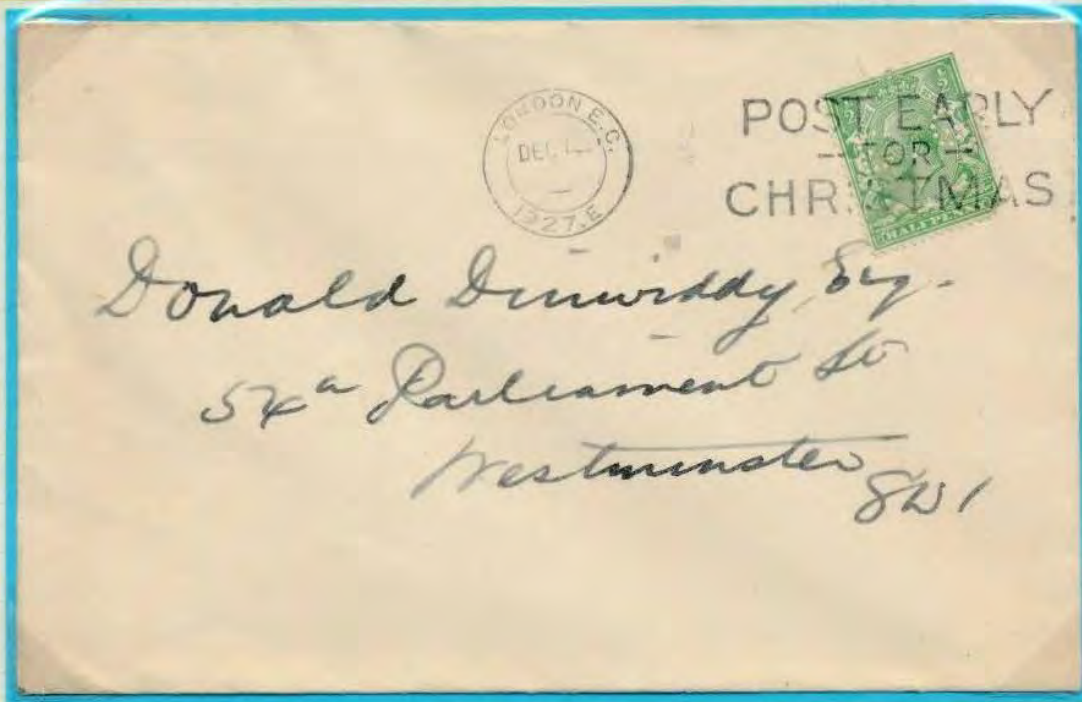 LONDON E.C.
DEC
1927.E
POST EARLY
FOR
CHRISTMAS
HALFPENNY
Donald Dinwiddy, Esq.
54a Parliament St
Westminster
SW1